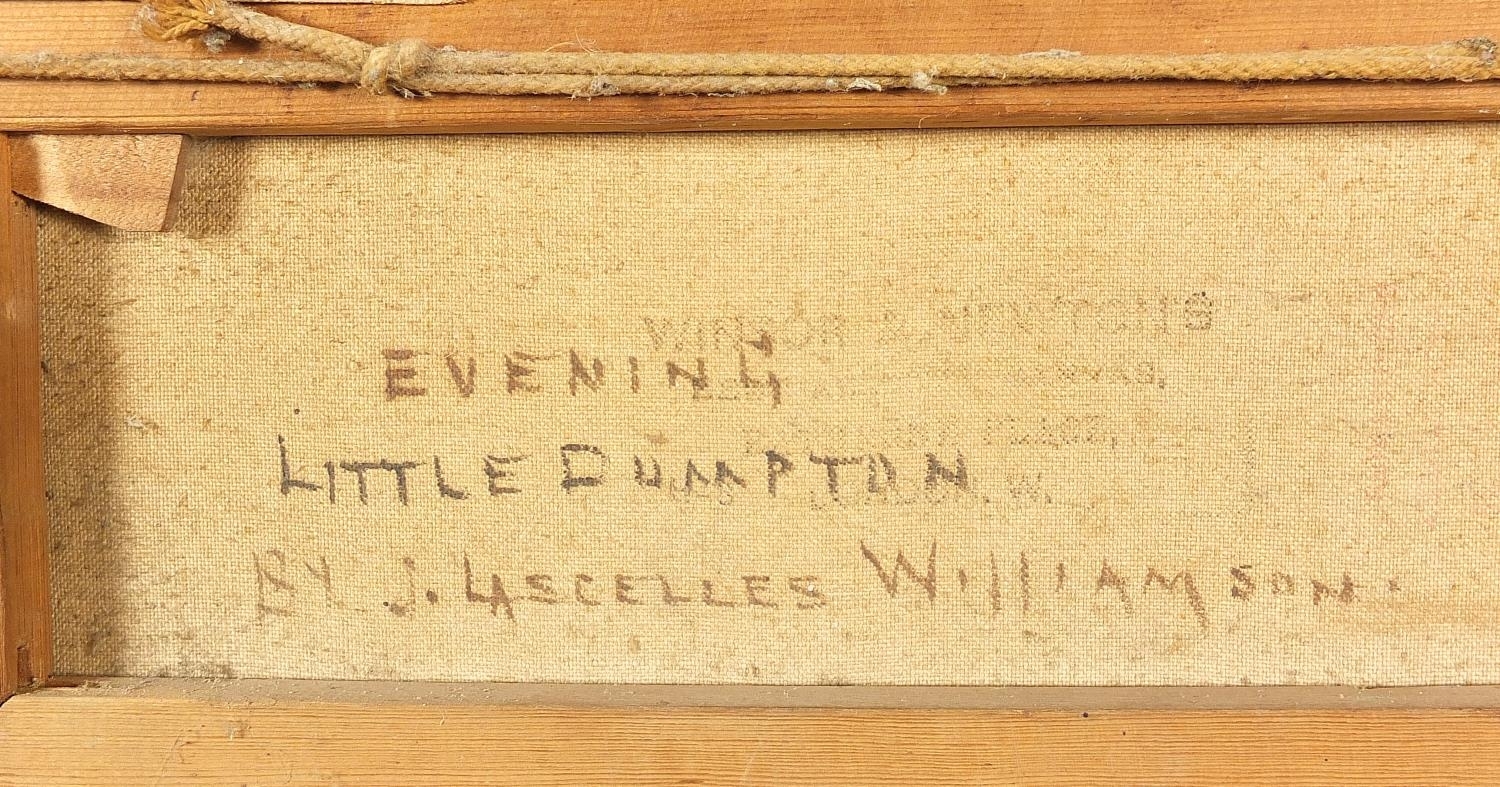 WINSOR & NEWTON'S
EVENING
PLACE,
LITTLE DUMPTON
W.
BY J. LASCELLES WILLIAMSON.